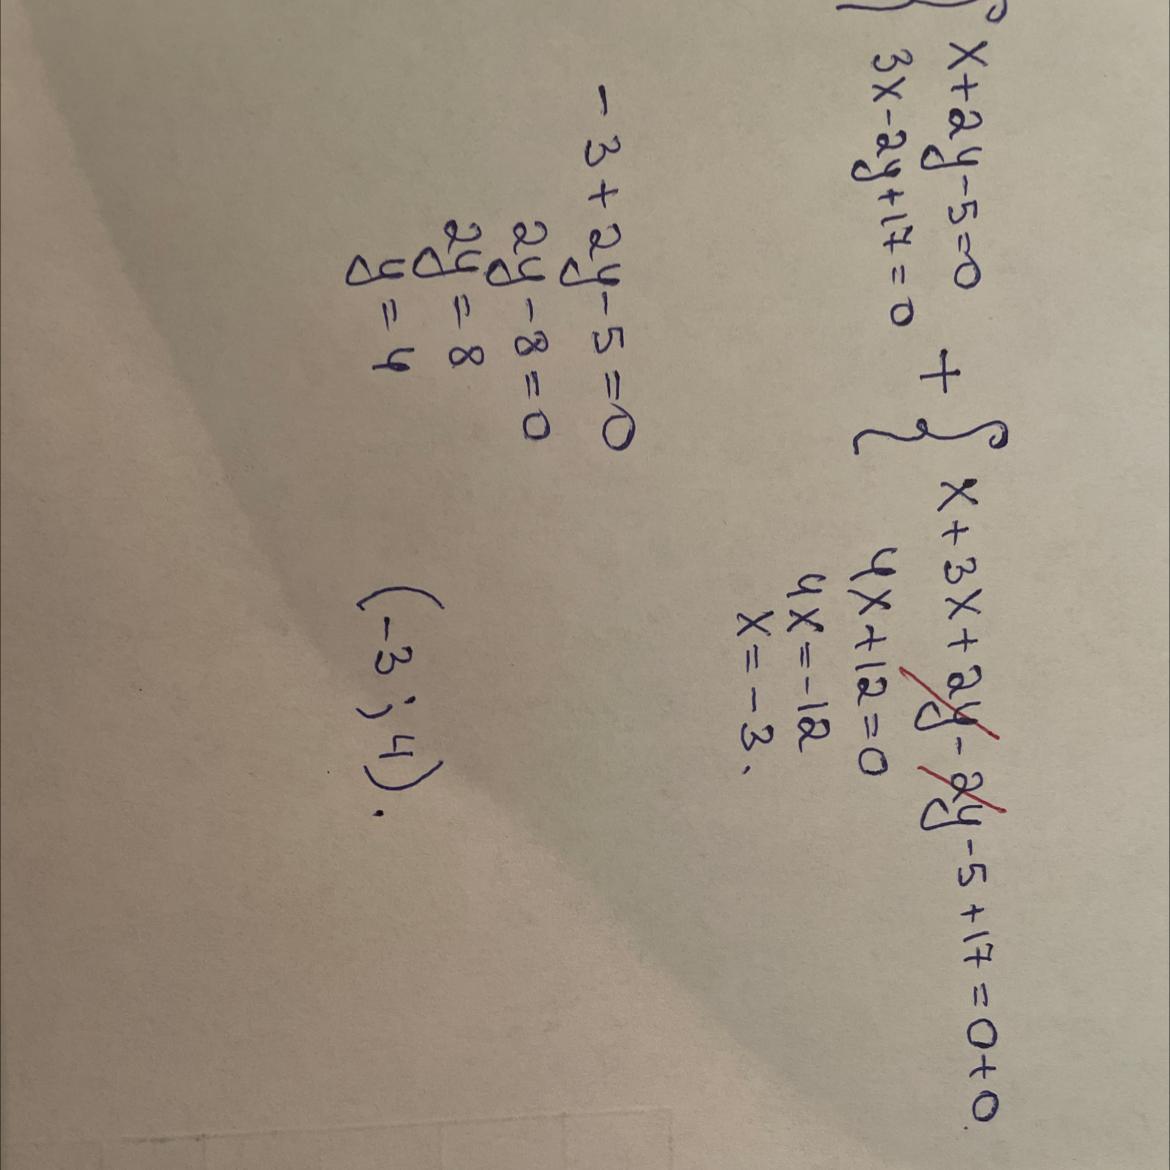 x+2y-5=0
3x-2y+17=0 + { x+3x+2y-2y-5+17=0+0
4x+12=0
4x=-12
x=-3.
-3+2y-5=0
2y-8=0
2y=8
y=4
(-3;4).